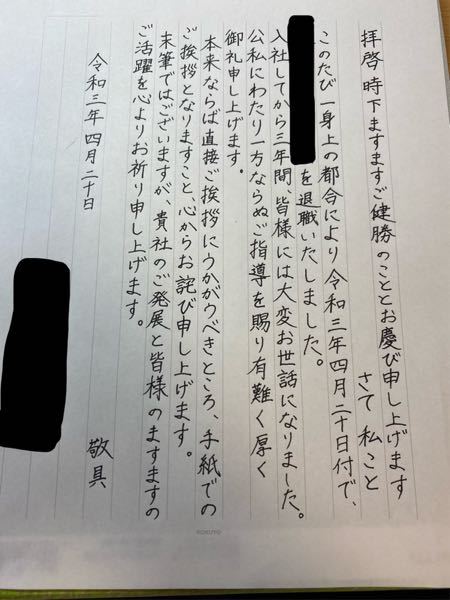 拝啓 時下ますますご健勝のこととお慶び申し上げます
さて 私こと
このたび一身上の都合により令和三年四月二十日付で、
を退職いたしました。
入社してから三年間、皆様には大変お世話になりました。
公私にわたり一方ならぬご指導を賜り有難く厚く
御礼申し上げます。
本来ならば直接ご挨拶にうかがうべきところ、手紙での
ご挨拶となりますこと、心からお詫び申し上げます。
末筆ではございますが、貴社のご発展と皆様のますますの
ご活躍を心よりお祈り申し上げます。
敬具
令和三年四月二十日
KOKUYO